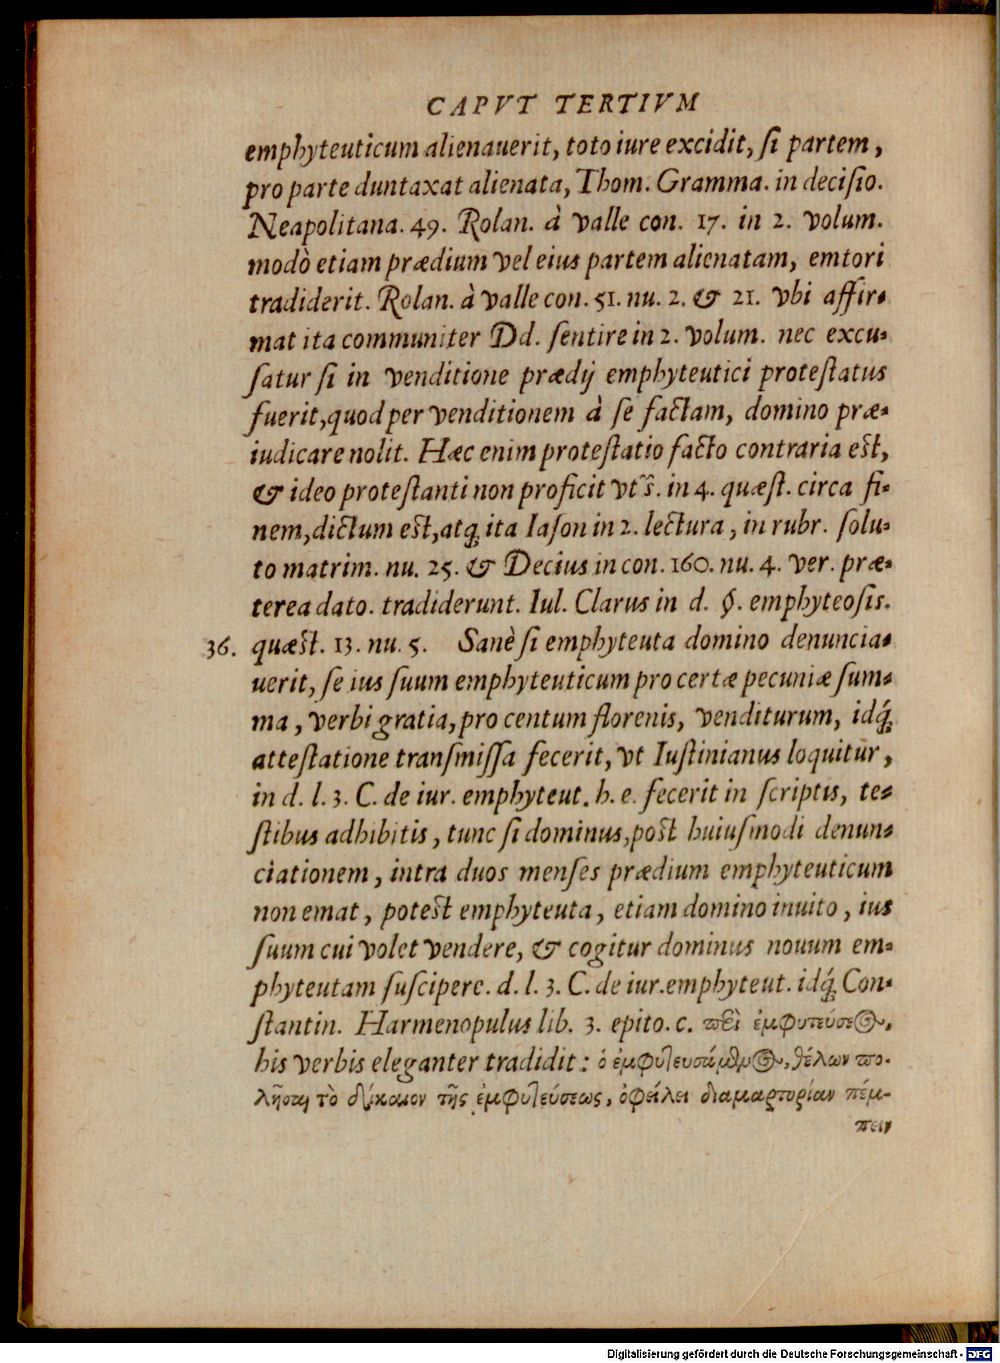 CAPVT TERTIVM
emphyteuticum alienauerit, toto iure excidit, si partem,
pro parte duntaxat alienata, Thom. Gramma. in decisio.
Neapolitana. 49. Rolan. à valle con. 17. in 2. volum.
modò etiam prædium vel eius partem alienatam, emtori
tradiderit. Rolan. à valle con. 51. nu. 2. & 21. vbi affir-
mat ita communiter Dd. sentire in 2. volum. nec excu-
satur si in venditione prædij emphyteutici protestatus
fuerit, quod per venditionem à se factam, domino præ-
iudicare nolit. Hæc enim protestatio facto contraria est,
& ideo protestanti non proficit vt s. in 4. quæst. circa fi-
nem, dictum est, atq; ita Iason in 2. lectura, in rubr. solu-
to matrim. nu. 25. & Decius in con. 160. nu. 4. ver. præ-
terea dato. tradiderunt. Iul. Clarus in d. §. emphyteosis.
36. quæst. 13. nu. 5. Sanè si emphyteuta domino denuncia-
uerit, se ius suum emphyteuticum pro certæ pecuniæ sum-
ma, verbi gratia, pro centum florenis, venditurum, idq́;
attestatione transmissa fecerit, vt Iustinianus loquitur,
in d. l. 3. C. de iur. emphyteut. h. e. fecerit in scriptis, te-
stibus adhibitis, tunc si dominus, post huiusmodi denun-
ciationem, intra duos menses prædium emphyteuticum
non emat, potest emphyteuta, etiam domino inuito, ius
suum cui volet vendere, & cogitur dominus nouum em-
phyteutam suscipere. d. l. 3. C. de iur. emphyteut. idq́; Con-
stantin. Harmenopulus lib. 3. epito. c. περὶ ἐμφυτεύσεως,
his verbis eleganter tradidit: ὁ ἐμφυτευσάμενος, θέλων πω-
λῆσαι τὸ δίκαιον τῆς ἐμφυτεύσεως, ὀφείλει διαμαρτυρίαν πέμ-
πειν
Digitalisierung gefördert durch die Deutsche Forschungsgemeinschaft - DFG